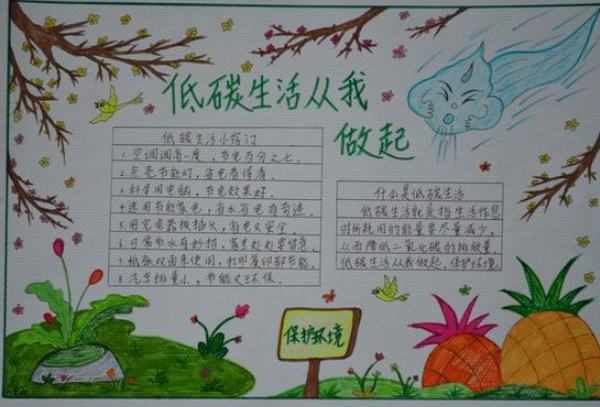 低碳生活从我
做起
低碳生活小窍门
1.空调调高一度，节电百分之七。
2.点亮节能灯，省电看得清。
3.科学用电脑，节电效果好。
4.选用节能家电，省水省电有奇迹。
5.用完电器拔插头，省电又安全。
6.日常节水有妙招，
7.纸张双面来使用，打印复印都节能。
8.汽车排量小，节能又环保。
什么是低碳生活
低碳生活就是指生活作息
时所耗用的能量要尽量减少，
从而降低二氧化碳的排放量
低碳生活从我做起，保护环境
保护环境